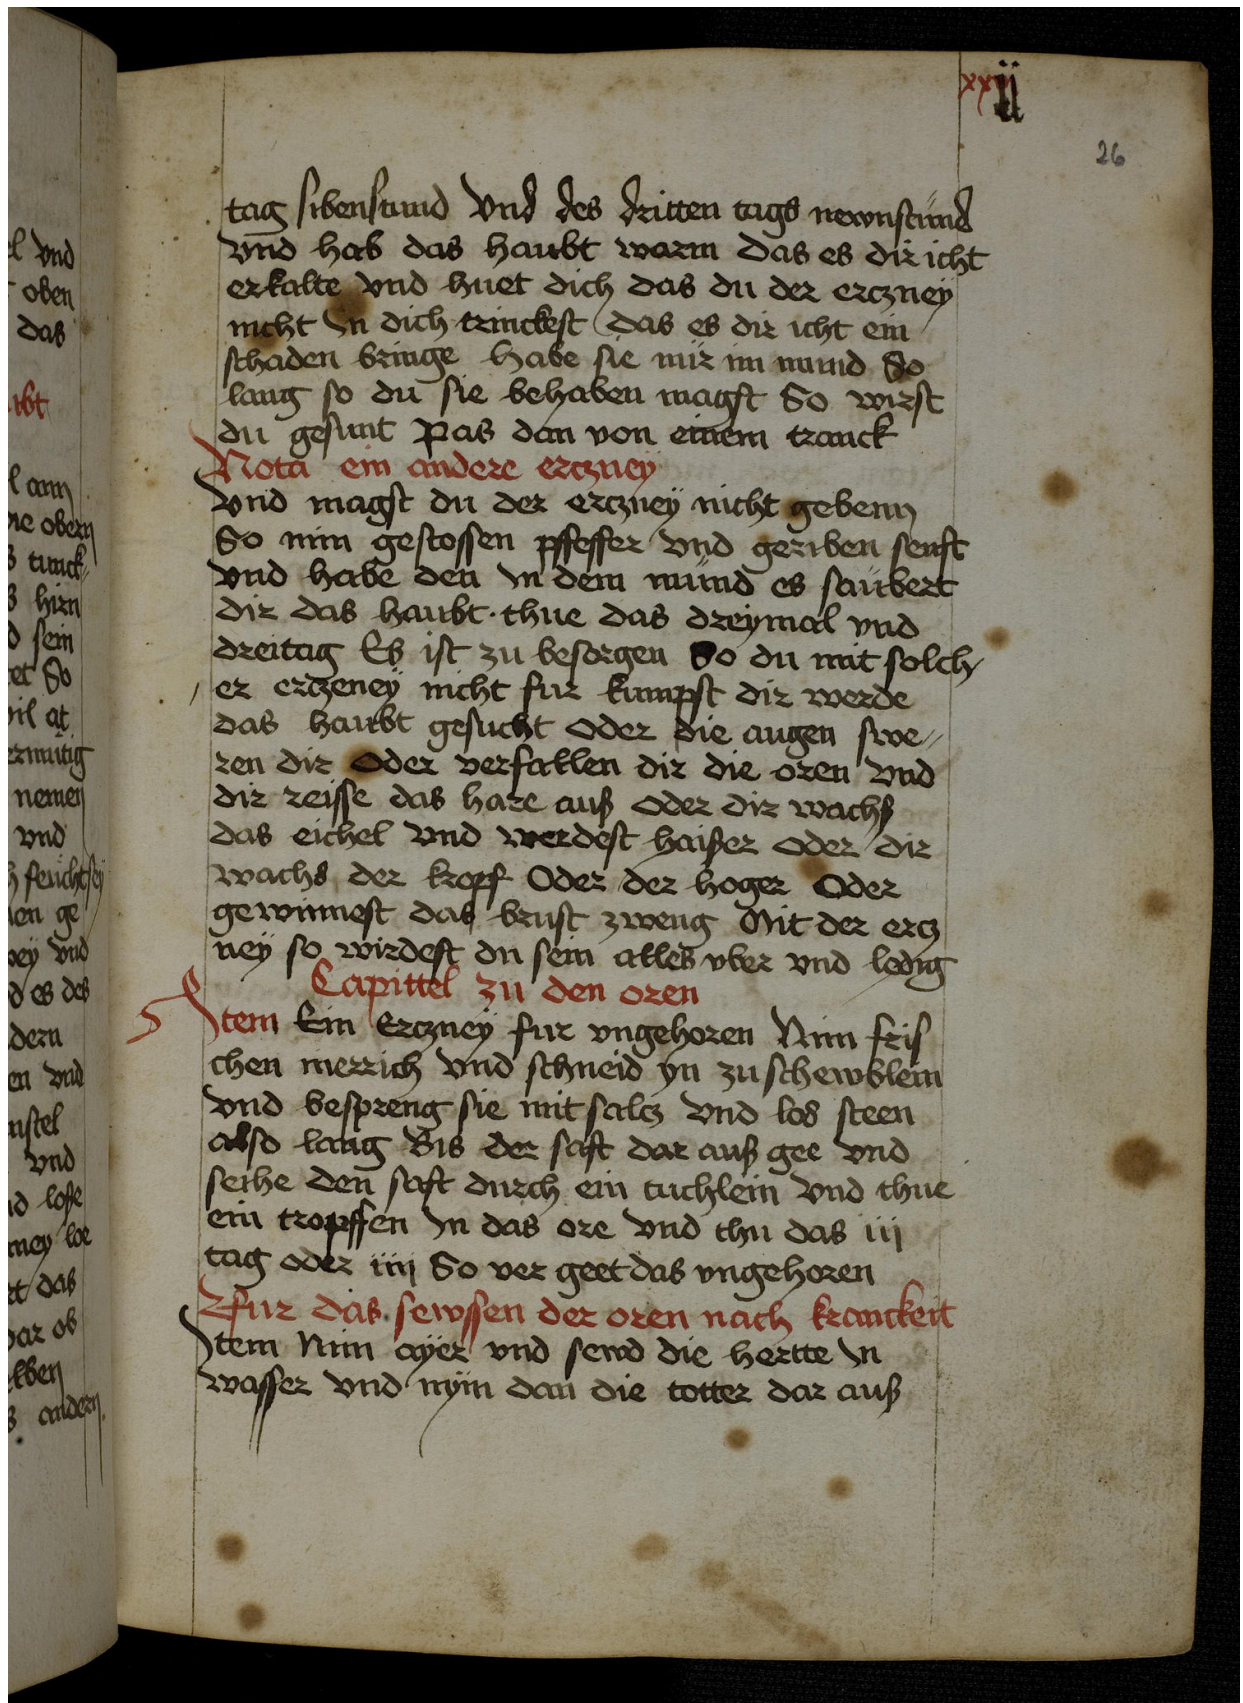 xxii
26
tag sibenstund Vnd des dritten tags newnstund
Vnd hab das haubt warm das es dir icht
erkalte Vnd huet dich das du der erczneÿ
nicht In dich trinckest das es dir icht ein
schaden bringe habe sie nür im mund So
lang so du sie behaben magst So wirst
du gesunt Pas dan von einem tranck
Nota ein andere erczneÿ
Vnd magst du der erczneÿ nicht gebenn
So nim gestossen pffeffer Vnd geriben senft
Vnd habe den In dem mund es saubert
dir das haubt · thue das dreÿmal vnd
dreitag Es ist zu besorgen So du mit solch
er erczeneÿ nicht fur kumpst dir werde
das haubt gesucht oder die augen swe//
ren dir Oder verfallen dir die oren Vnd
dir reisse das hare auß oder dir wachß
das eichel Vnd werdest haißer oder dir
wachs der kropf Oder der hoger Oder
gewinnest das brust zweng Mit der ercz
neÿ so wirdest du sein alles vber vnd ledig
Capittel zu den oren
Item Ein Erczneÿ fur vngehoren Nim fris
chen merrich Vnd schneid yn zu schewblein
Vnd bespreng sie mit salcz Vnd los steen
also lang Bis der saft dar auß gee Vnd
seihe den saft durch ein tuchlein Vnd thue
ein tropffen In das ore Vnd thu das iij
tag oder iiij So ver geet das vngehoren
Fur das sewssen der oren nach kranckeit
Item Nim aÿer vnd sewd die hertte In
wasser Vnd nÿm dan die totter dar auß